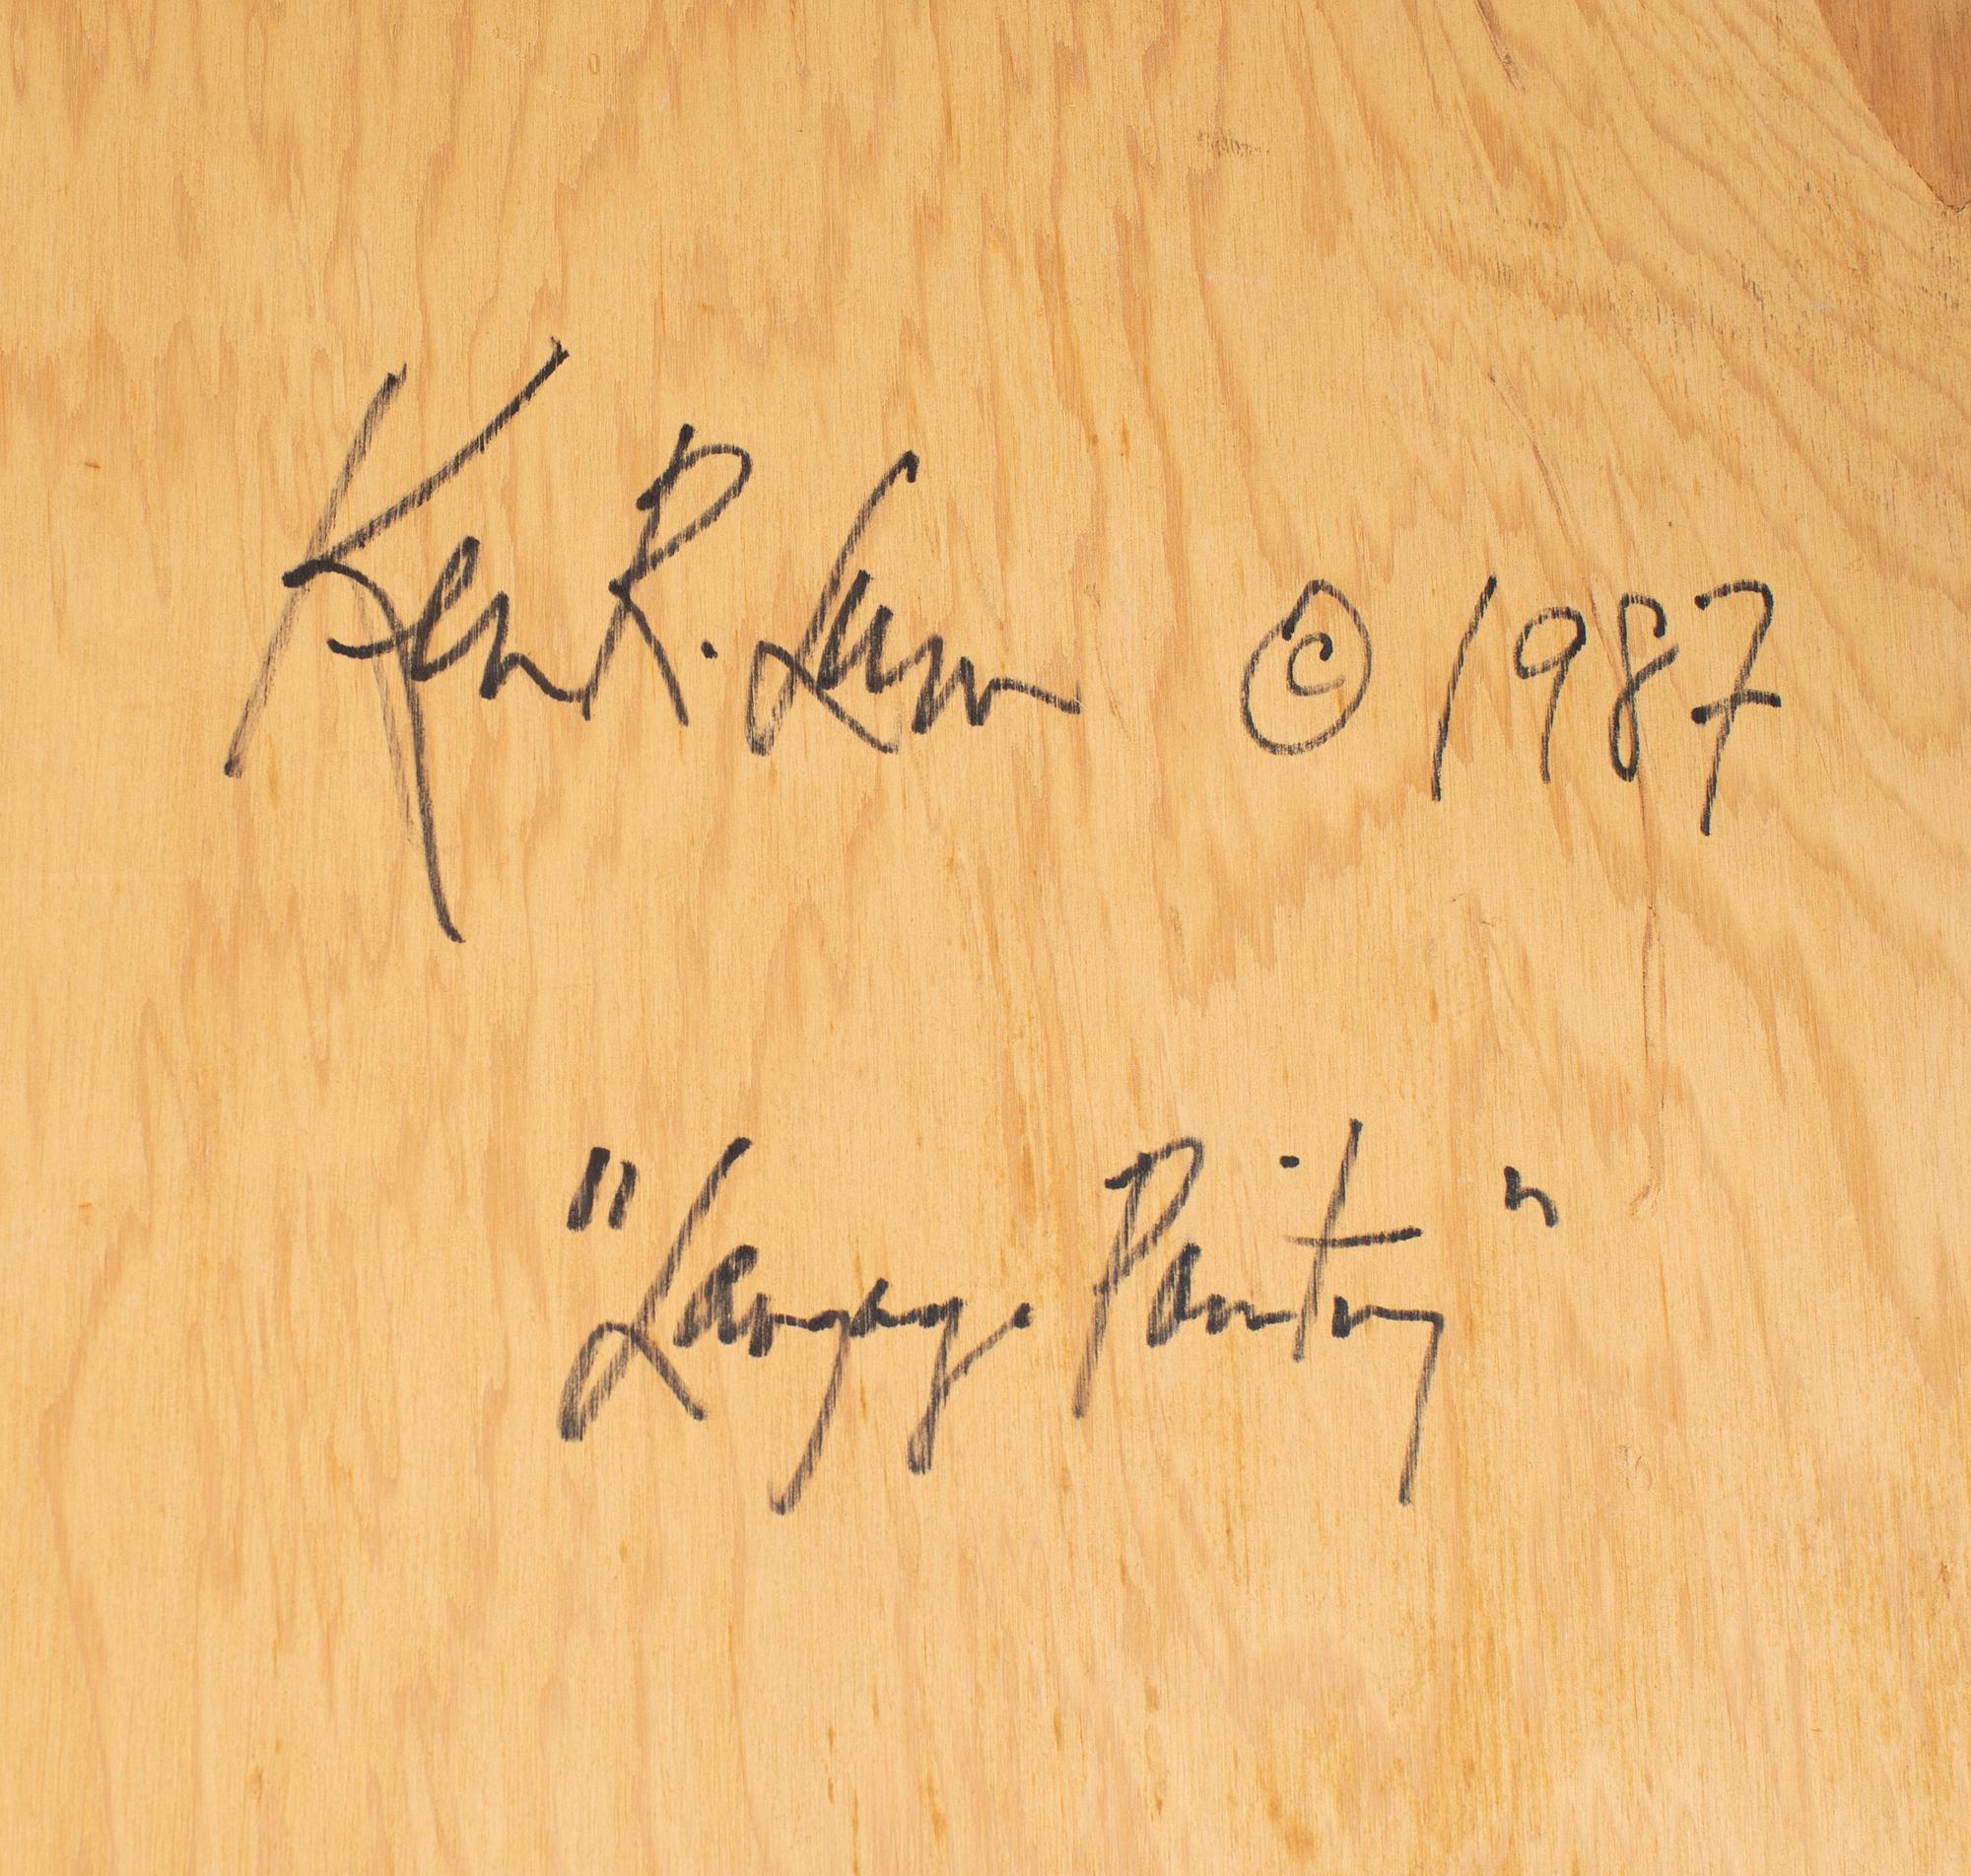 Ken R. Lum © 1987
"Language Painting"